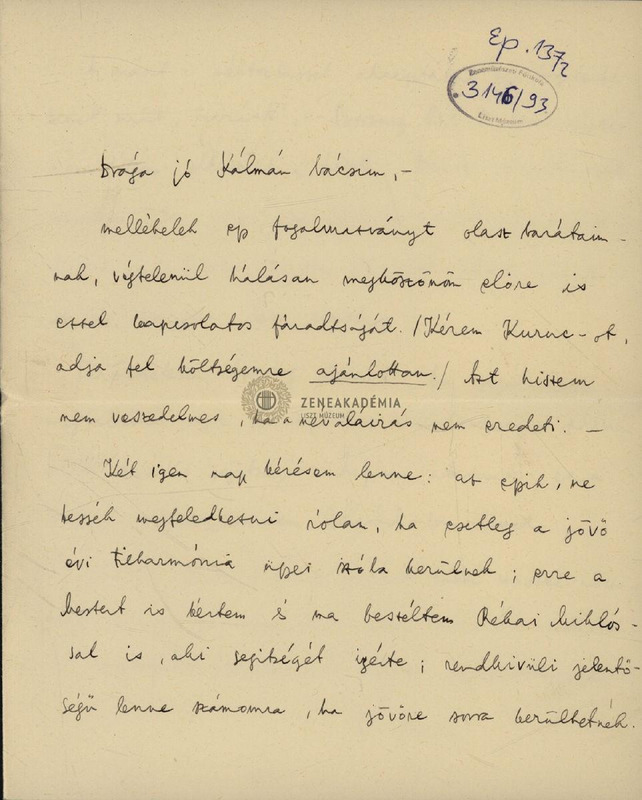 Ep. 137/2
Zeneművészeti Főiskola
3146/93
Liszt Múzeum
Drága jó Kálmán bácsim, -
mellékelek egy fogalmazványt olasz barátaim-
nak, végtelenül hálásan megköszönöm előre is
ezzel kapcsolatos fáradtságát. /Kérem Kurucz-ot,
adja fel költségemre ajánlottan./ Azt hiszem
nem veszedelmes, ha a névaláirás nem eredeti. -
ZENEAKADÉMIA
LISZT MÚZEUM
Két igen nagy kérésem lenne: az egyik, ne
tessék megfeledkezni rólam, ha esetleg a jövő
évi Filharmónia ügyei szóba kerülnek; erre a
is kértem és ma beszéltem Rékai Miklós-
sal is, aki segitségét igérte; rendkivüli jelentő-
ségű lenne számomra, ha jövőre sorra kerülhetnék.